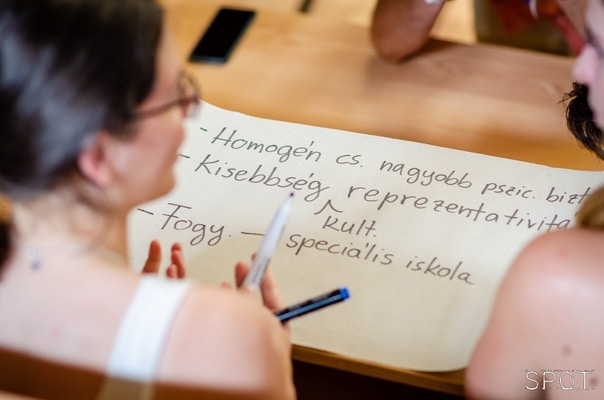 - Homogén cs. nagyobb pszic. bizt
- Kisebbség reprezentativitá
kult.
- Fogy. - speciális iskola
S.P.O.T.